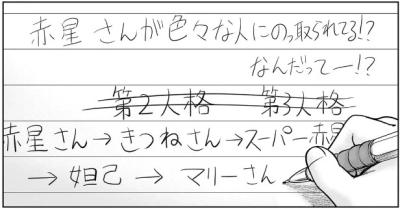 赤星さんが色々な人にのっ取られてる!?
なんだってー!?
第2人格 第3人格
赤星さん→きつねさん→スーパー赤星
→ 妲己 → マリーさん